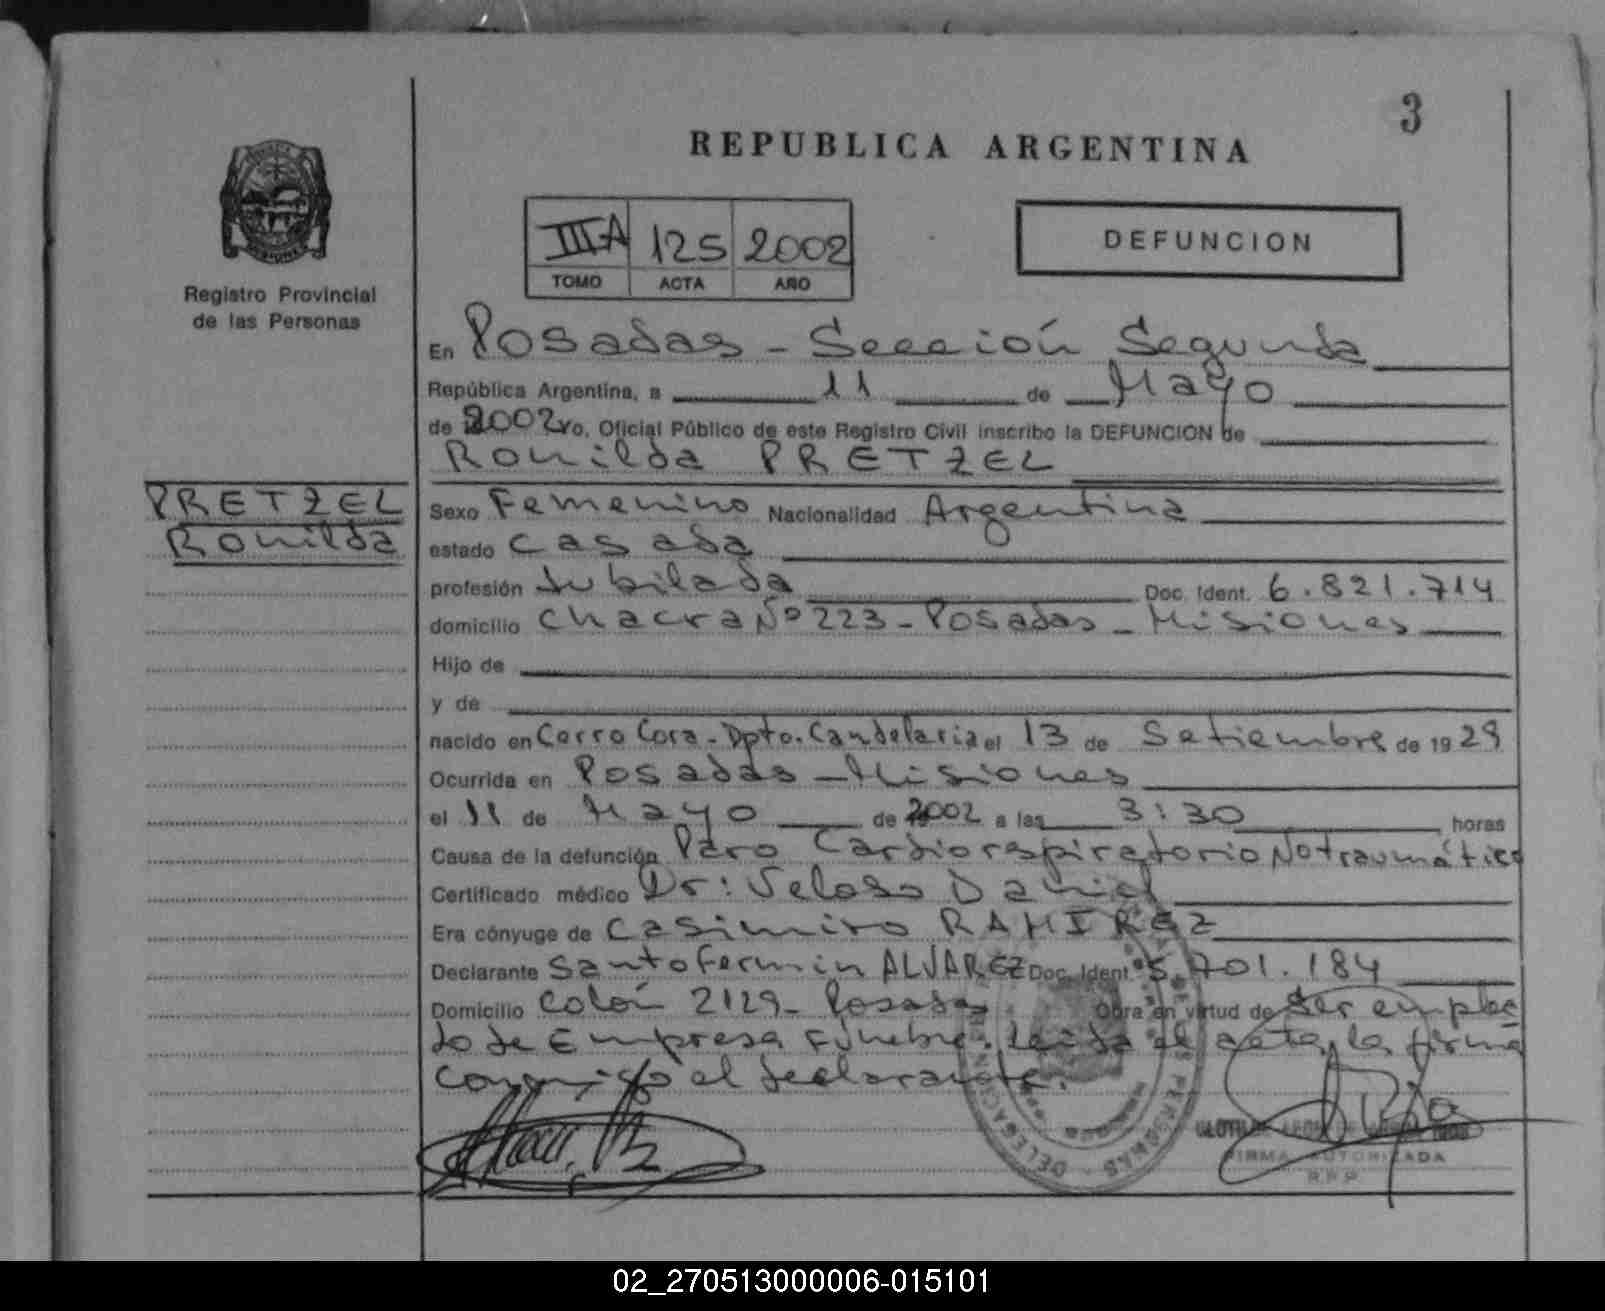 3
REPUBLICA ARGENTINA
Registro Provincial
de las Personas
IIIA 125 2002
TOMO ACTA AÑO
DEFUNCION
En Posadas - Sección Segunda
República Argentina, a 11 de Mayo
de 2002 Yo, Oficial Público de este Registro Civil inscribo la DEFUNCION de
Romilda PRETZEL
PRETZEL
Romilda
Sexo Femenino Nacionalidad Argentina
estado casada
profesión Jubilada Doc. Ident. 6.821.714
domicilio Chacra Nº 223 - Posadas - Misiones
Hijo de
y de
nacido en Cerro Cora - Dpto. Candelaria el 13 de Setiembre de 1929
Ocurrida en Posadas - Misiones
el 11 de Mayo de 2002 a las 3:30 horas
Causa de la defunción Paro Cardiorespiratorio No traumático
Certificado médico Dr: Veloso Daniel
Era cónyuge de Casimiro RAMIREZ
Declarante Santo Fermin ALVAREZ Doc. Ident. 5.701.184
Domicilio Colón 2129 - Posadas Obra en virtud de Ser emplea
do de Empresa Fúnebre. Leida el acta, la firma
conmigo el declarante.
FIRMA AUTORIZADA
R.P.P.
02_270513000006-015101